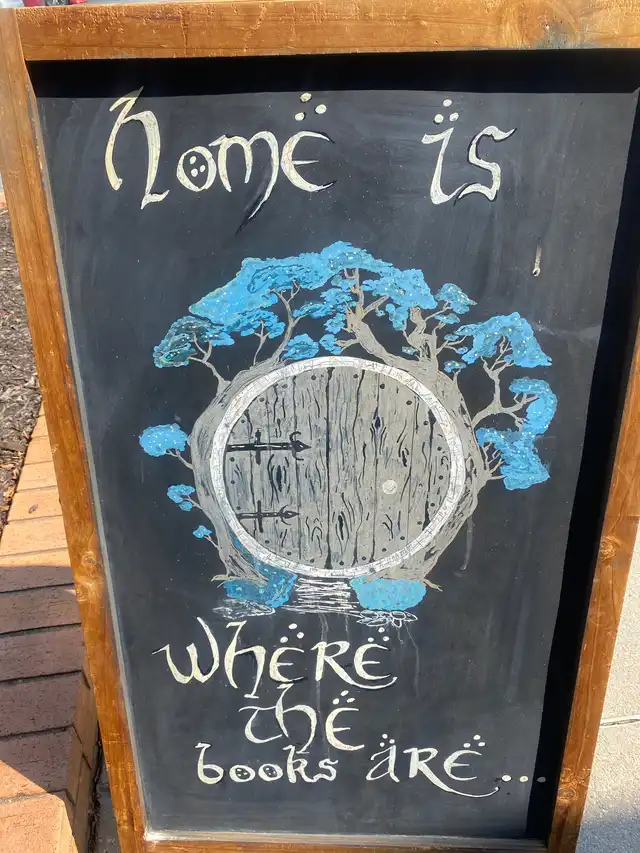 Home is
where
the
books are...